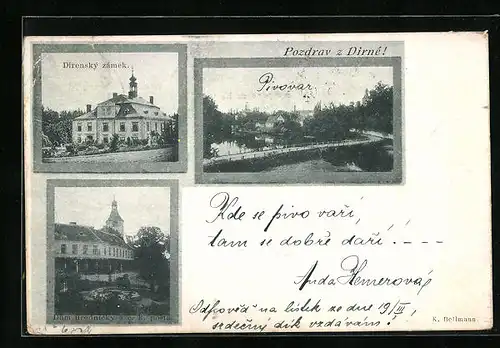 Pozdrav z Dirné!
Direnský zámek.
Pivovar
Kde se pivo vaří,
tam se dobře daří.----
Anda Hemerová
Dům úřednický s c. k. poštou
Odpověď na lístek ze dne 19/III,
srdečný dík vzdávám!
K. Bellmann